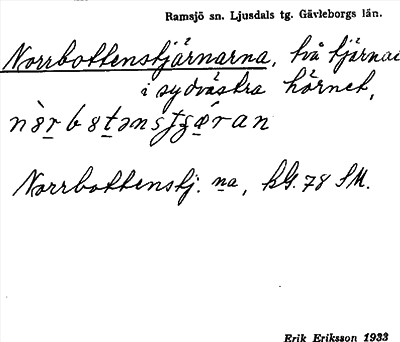 Ramsjö sn. Ljusdals tg. Gävleborgs län.
Norrbottenstjärnarna, två tjärnar
i sydvästra hörnet,
Norrbottenstj. na, bG. 78 SM.
Erik Eriksson 1933